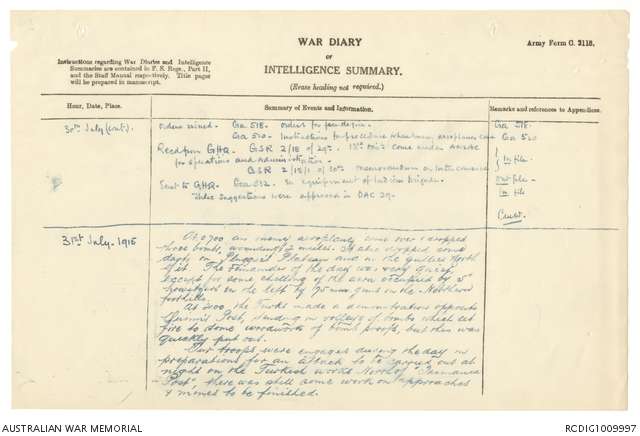 WAR DIARY
or
INTELLIGENCE SUMMARY.
(Erase heading not required.)
Army Form C. 2118.
Instructions regarding War Diaries and Intelligence
Summaries are contained in F. S. Regs., Part II,
and the Staff Manual respectively. Title pages
will be prepared in manuscript.
Hour, Date, Place.
Summary of Events and Information.
Remarks and references to Appendices.
30th July (cont.)
Orders issued. Ga 518. Orders for
Ga 520 Instructions for procedure when
Ga 518.
Ga 520
Recd from GHQ. GSR 2/18 of 29th. 13th Divn come under Anzac
for operations and Administration.
GSR of 30th Memorandum on
in file
Sent to GHQ. equipment of Indian Brigade.
out file
These suggestions were approved in DAC 29.
in file
31st July. 1915
At 0700 an enemy aeroplane came over & dropped
three bombs, wounding 2 mules. It also dropped some
darts on Plugge's Plateau and in the gullies North
of it. The remainder of the day was very quiet
except for some shelling of the area occupied by 5"
howitzers on the left by 75 mm guns in the Northern
foothills.
At 2100 the Turks made a demonstration opposite
Quinn's Post, sending in volleys of bombs which set
fire to some woodwork of bomb proofs, but this was
quickly put out.
Our troops were engaged during the day in
preparations for an attack to be carried out at
night on the Turkish works North of "Tasmania
Post", there was still some work on approaches
& mines to be finished.
AUSTRALIAN WAR MEMORIAL
RCDIG1009997